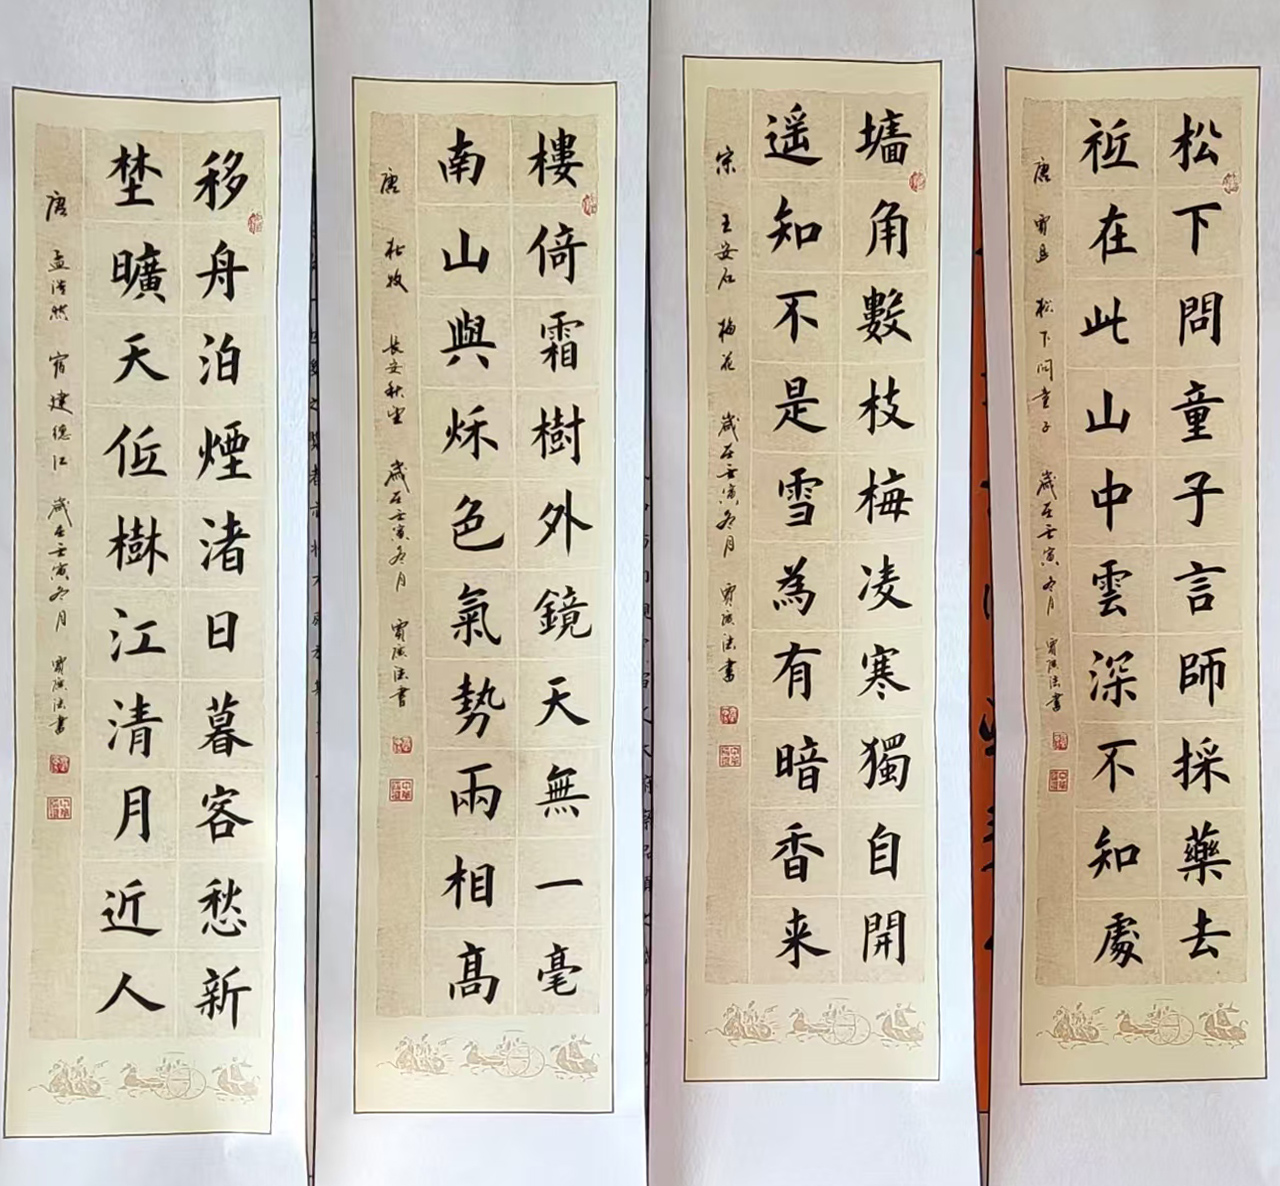 松下問童子言師採藥去
祗在此山中雲深不知處
唐 賈島 松下问童子 歲在壬寅冬月 賈廣法書
墻角數枝梅凌寒獨自開
遥知不是雪為有暗香来
宋 王安石 梅花 歲在壬寅冬月 賈廣法書
樓倚霜樹外鏡天無一毫
南山與秌色氣勢兩相高
唐 杜牧 长安秋望 歲在壬寅冬月 賈廣法書
移舟泊煙渚日暮客愁新
埜曠天低樹江清月近人
唐 孟浩然 宿建德江 歲在壬寅冬月 賈廣法書